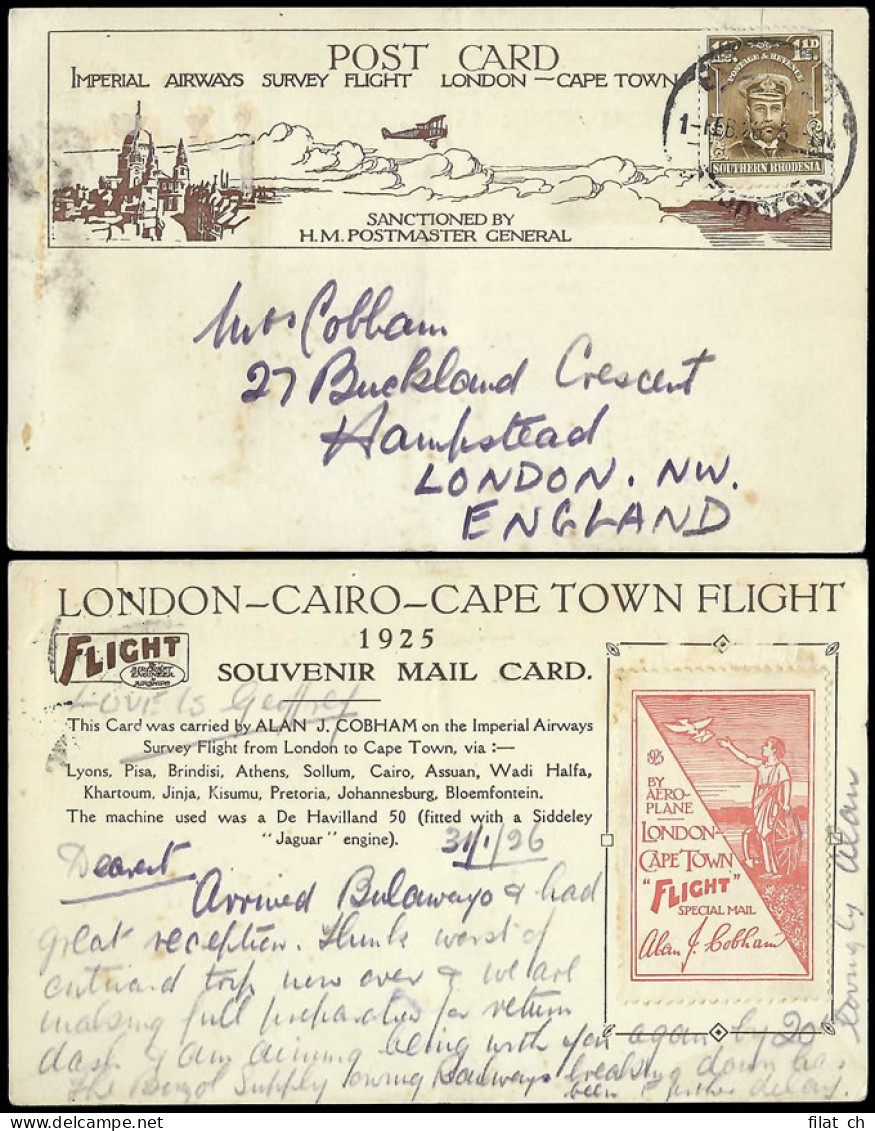 POST CARD
IMPERIAL AIRWAYS SURVEY FLIGHT LONDON — CAPE TOWN
SANCTIONED BY
H.M. POSTMASTER GENERAL
1½D 1½D
POSTAGE & REVENUE
SOUTHERN RHODESIA
1-FEB
Mrs Cobham
27 Buckland Crescent
Hampstead
LONDON. NW.
ENGLAND
LONDON–CAIRO–CAPE TOWN FLIGHT
1925
FLIGHT
SOUVENIR MAIL CARD.
LOVE to Geoffrey
This Card was carried by ALAN J. COBHAM on the Imperial Airways
Survey Flight from London to Cape Town, via :—
Lyons, Pisa, Brindisi, Athens, Sollum, Cairo, Assuan, Wadi Halfa,
Khartoum, Jinja, Kisumu, Pretoria, Johannesburg, Bloemfontein.
The machine used was a De Havilland 50 (fitted with a Siddeley
"Jaguar" engine).
31/1/26
Dearest
Arrived Bulawayo & had
great reception. Think worst of
outward trip now over & we are
making full preparation for return
dash & am aiming being with you again by 20
The Benzol Supply Railways breaking down has
been further delay.
lovingly Alan
1925
BY
AERO-
PLANE
LONDON-
CAPE TOWN
"FLIGHT"
SPECIAL MAIL
Alan J. Cobham
filat ch